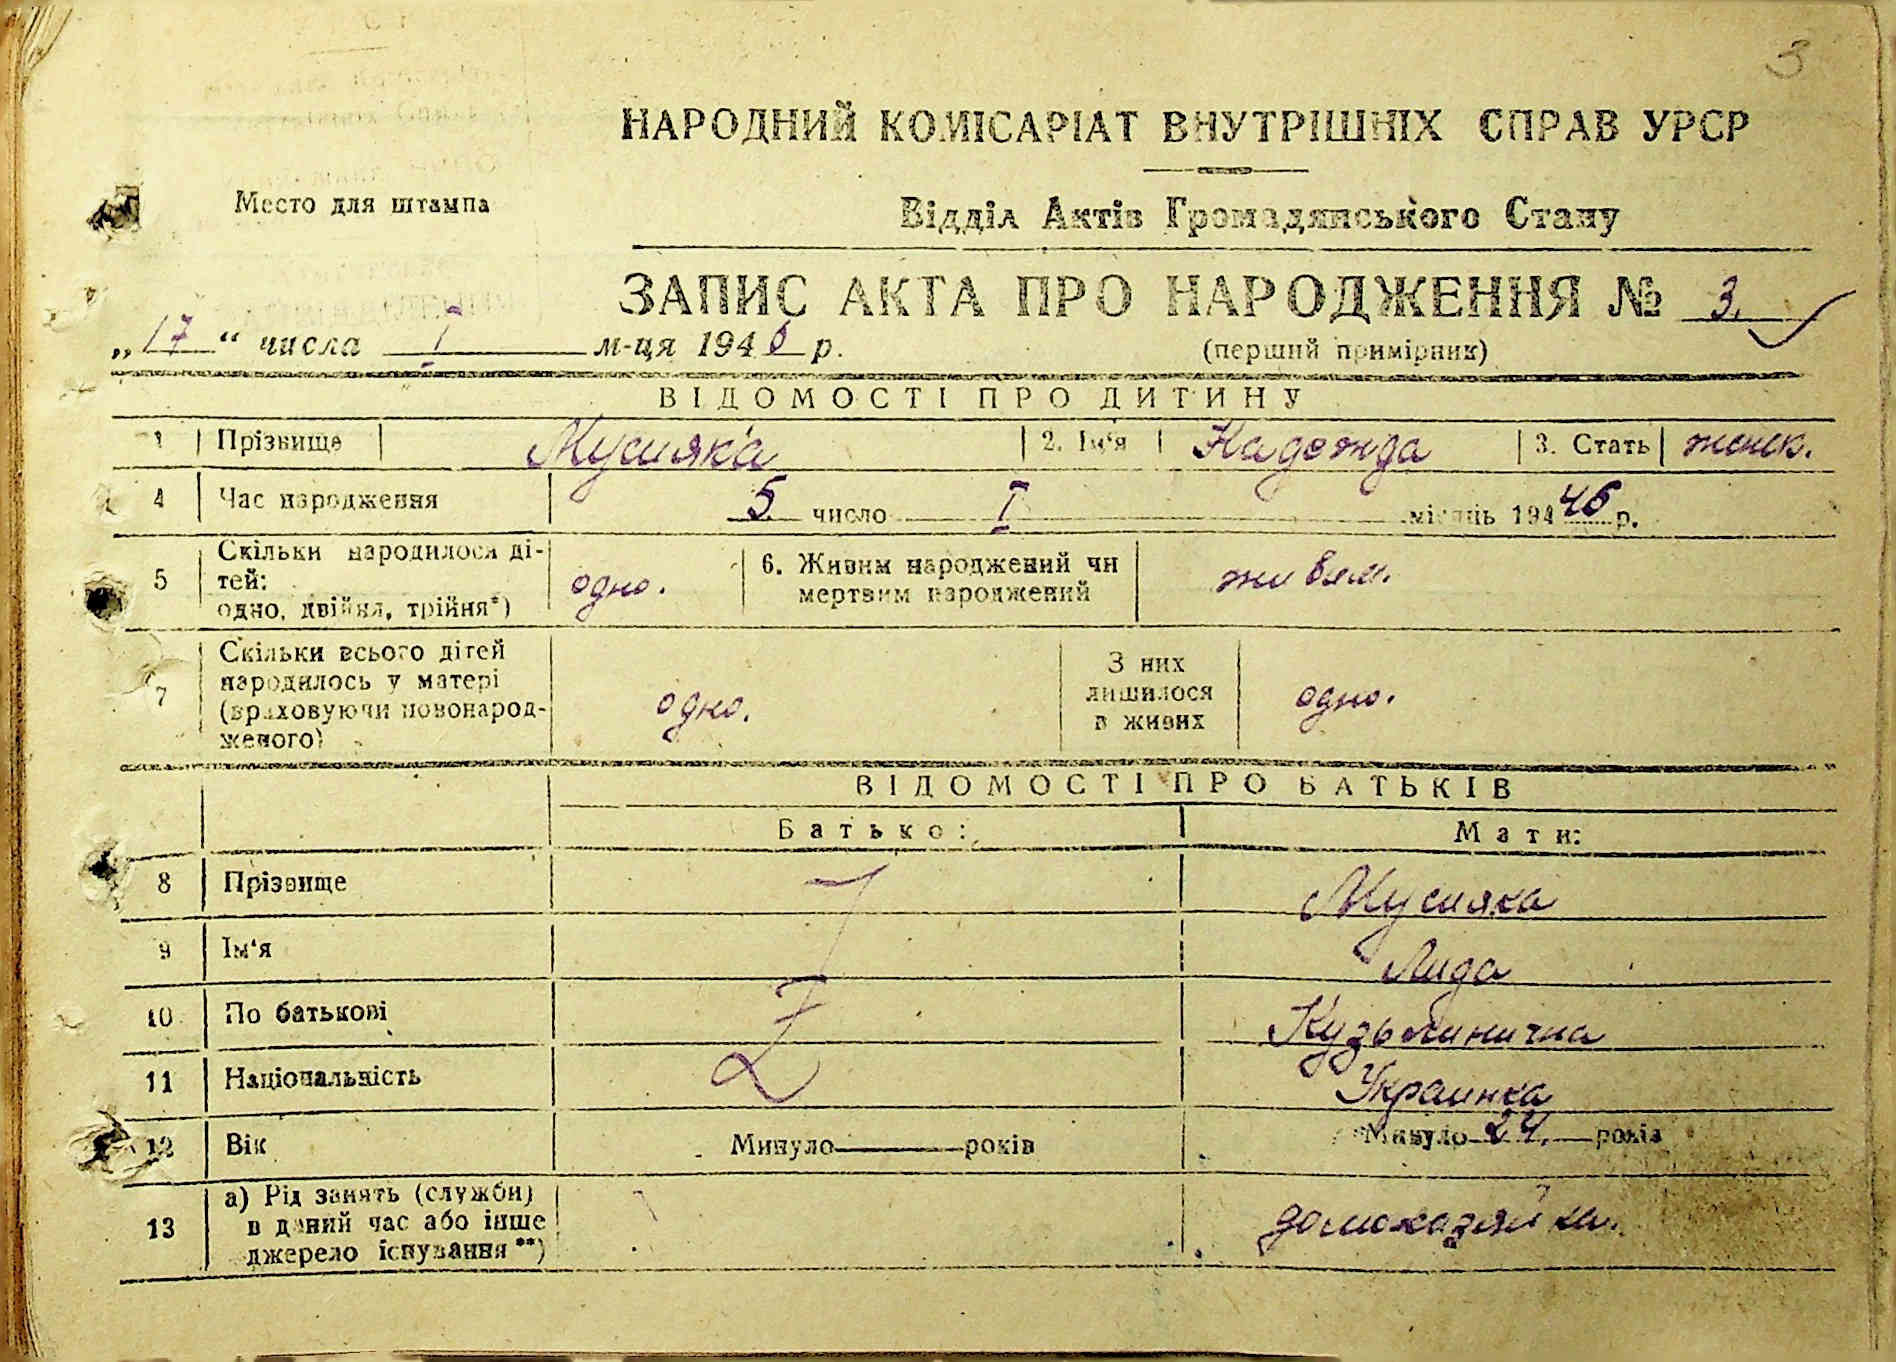 3
НАРОДНИЙ КОМІСАРІАТ ВНУТРІШНІХ СПРАВ УРСР
Место для штампа
Відділ Актів Громадянського Стану
ЗАПИС АКТА ПРО НАРОДЖЕННЯ № 3.
„17“ числа I м-ця 1946 р.
(перший примірник)
ВІДОМОСТІ ПРО ДИТИНУ
1 Прізвище Мусияка 2. Ім‘я Надежда 3. Стать женск.
4 Час народження 5 число I місяць 194 46 р.
5 Скільки народилося ді-
тей:
одно, двійня, трійня*) одно. 6. Живим народжений чи
мертвим народжений живым.
7 Скільки всього дітей
народилось у матері
(враховуючи новонарод-
женого) одно. З них
лишилося
в живих одно.
ВІДОМОСТІ ПРО БАТЬКІВ
Батько: Мати:
8 Прізвище Мусияка
9 Ім‘я Лида
10 По батькові Кузьминична
11 Національність Украинка
12 Вік Минуло років Минуло 24. років
13 а) Рід занять (служби)
в даний час або інше
джерело існування **) домохазяйка.